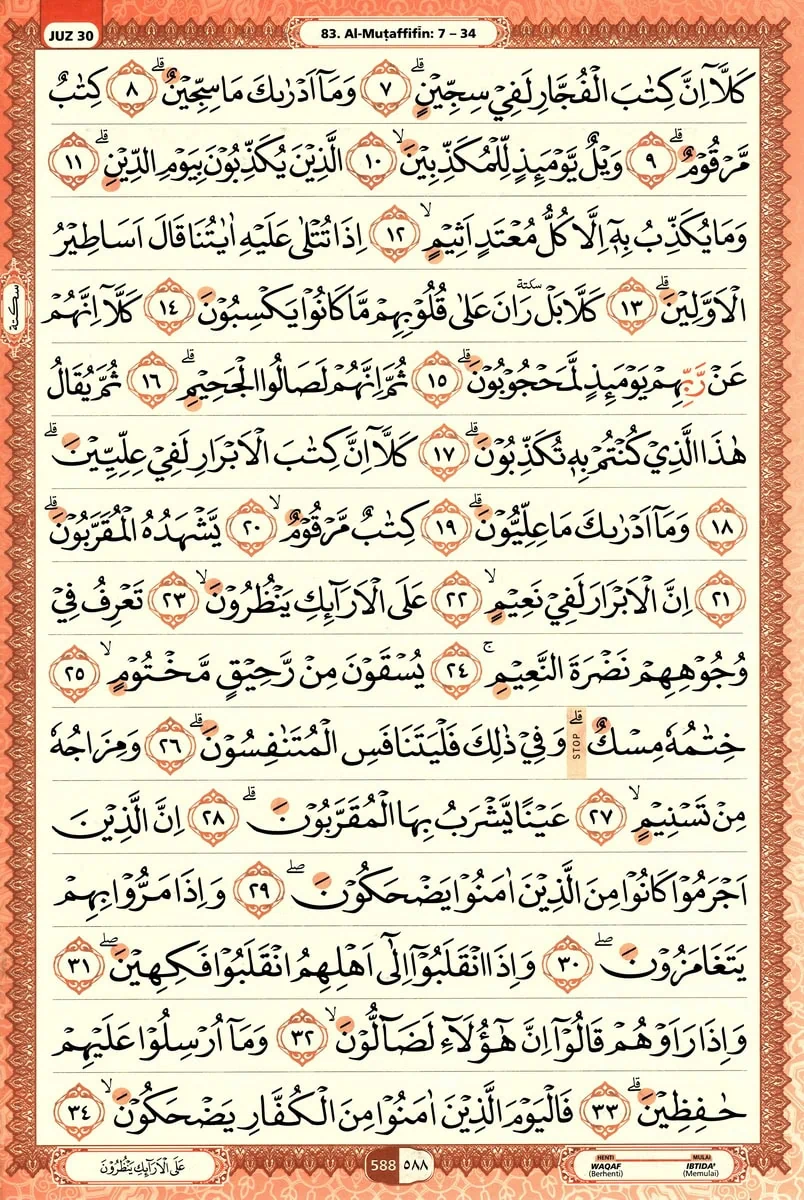 JUZ 30
83. Al-Muṭaffifīn: 7 – 34
كَلَّآ اِنَّ كِتٰبَ الْفُجَّارِ لَفِيْ سِجِّيْنٍۗ ٧ وَمَآ اَدْرٰىكَ مَا سِجِّيْنٌۗ ٨ كِتٰبٌ
مَّرْقُوْمٌۗ ٩ وَيْلٌ يَّوْمَىِٕذٍ لِّلْمُكَذِّبِيْنَۙ ١٠ الَّذِيْنَ يُكَذِّبُوْنَ بِيَوْمِ الدِّيْنِۗ ١١
وَمَا يُكَذِّبُ بِهٖٓ اِلَّا كُلُّ مُعْتَدٍ اَثِيْمٍۙ ١٢ اِذَا تُتْلٰى عَلَيْهِ اٰيٰتُنَا قَالَ اَسَاطِيْرُ
الْاَوَّلِيْنَۗ ١٣ كَلَّا بَلْ ۜ رَانَ عَلٰى قُلُوْبِهِمْ مَّا كَانُوْا يَكْسِبُوْنَ ١٤ كَلَّآ اِنَّهُمْ
سكتة
عَنْ رَّبِّهِمْ يَوْمَىِٕذٍ لَّمَحْجُوْبُوْنَۗ ١٥ ثُمَّ اِنَّهُمْ لَصَالُوا الْجَحِيْمِۗ ١٦ ثُمَّ يُقَالُ
هٰذَا الَّذِيْ كُنْتُمْ بِهٖ تُكَذِّبُوْنَۗ ١٧ كَلَّآ اِنَّ كِتٰبَ الْاَبْرَارِ لَفِيْ عِلِّيِّيْنَۗ
١٨ وَمَآ اَدْرٰىكَ مَا عِلِّيُّوْنَۗ ١٩ كِتٰبٌ مَّرْقُوْمٌۙ ٢٠ يَّشْهَدُهُ الْمُقَرَّبُوْنَۗ
٢١ اِنَّ الْاَبْرَارَ لَفِيْ نَعِيْمٍۙ ٢٢ عَلَى الْاَرَاۤىِٕكِ يَنْظُرُوْنَۙ ٢٣ تَعْرِفُ فِيْ
وُجُوْهِهِمْ نَضْرَةَ النَّعِيْمِۚ ٢٤ يُسْقَوْنَ مِنْ رَّحِيْقٍ مَّخْتُوْمٍۙ ٢٥
خِتٰمُهٗ مِسْكٌۗ STOP وَفِيْ ذٰلِكَ فَلْيَتَنَافَسِ الْمُتَنٰفِسُوْنَۗ ٢٦ وَمِزَاجُهٗ
مِنْ تَسْنِيْمٍۙ ٢٧ عَيْنًا يَّشْرَبُ بِهَا الْمُقَرَّبُوْنَۗ ٢٨ اِنَّ الَّذِيْنَ
اَجْرَمُوْا كَانُوْا مِنَ الَّذِيْنَ اٰمَنُوْا يَضْحَكُوْنَۖ ٢٩ وَاِذَا مَرُّوْا بِهِمْ
يَتَغَامَزُوْنَۖ ٣٠ وَاِذَا انْقَلَبُوْٓا اِلٰٓى اَهْلِهِمُ انْقَلَبُوْا فَكِهِيْنَۖ ٣١
وَاِذَا رَاَوْهُمْ قَالُوْٓا اِنَّ هٰٓؤُلَاۤءِ لَضَاۤلُّوْنَۙ ٣٢ وَمَآ اُرْسِلُوْا عَلَيْهِمْ
حٰفِظِيْنَۗ ٣٣ فَالْيَوْمَ الَّذِيْنَ اٰمَنُوْا مِنَ الْكُفَّارِ يَضْحَكُوْنَۙ ٣٤
عَلَى الْاَرَاۤىِٕكِ يَنْظُرُوْنَ
588 ٥٨٨
HENTI MULAI
WAQAF IBTIDA'
(Berhenti) (Memulai)